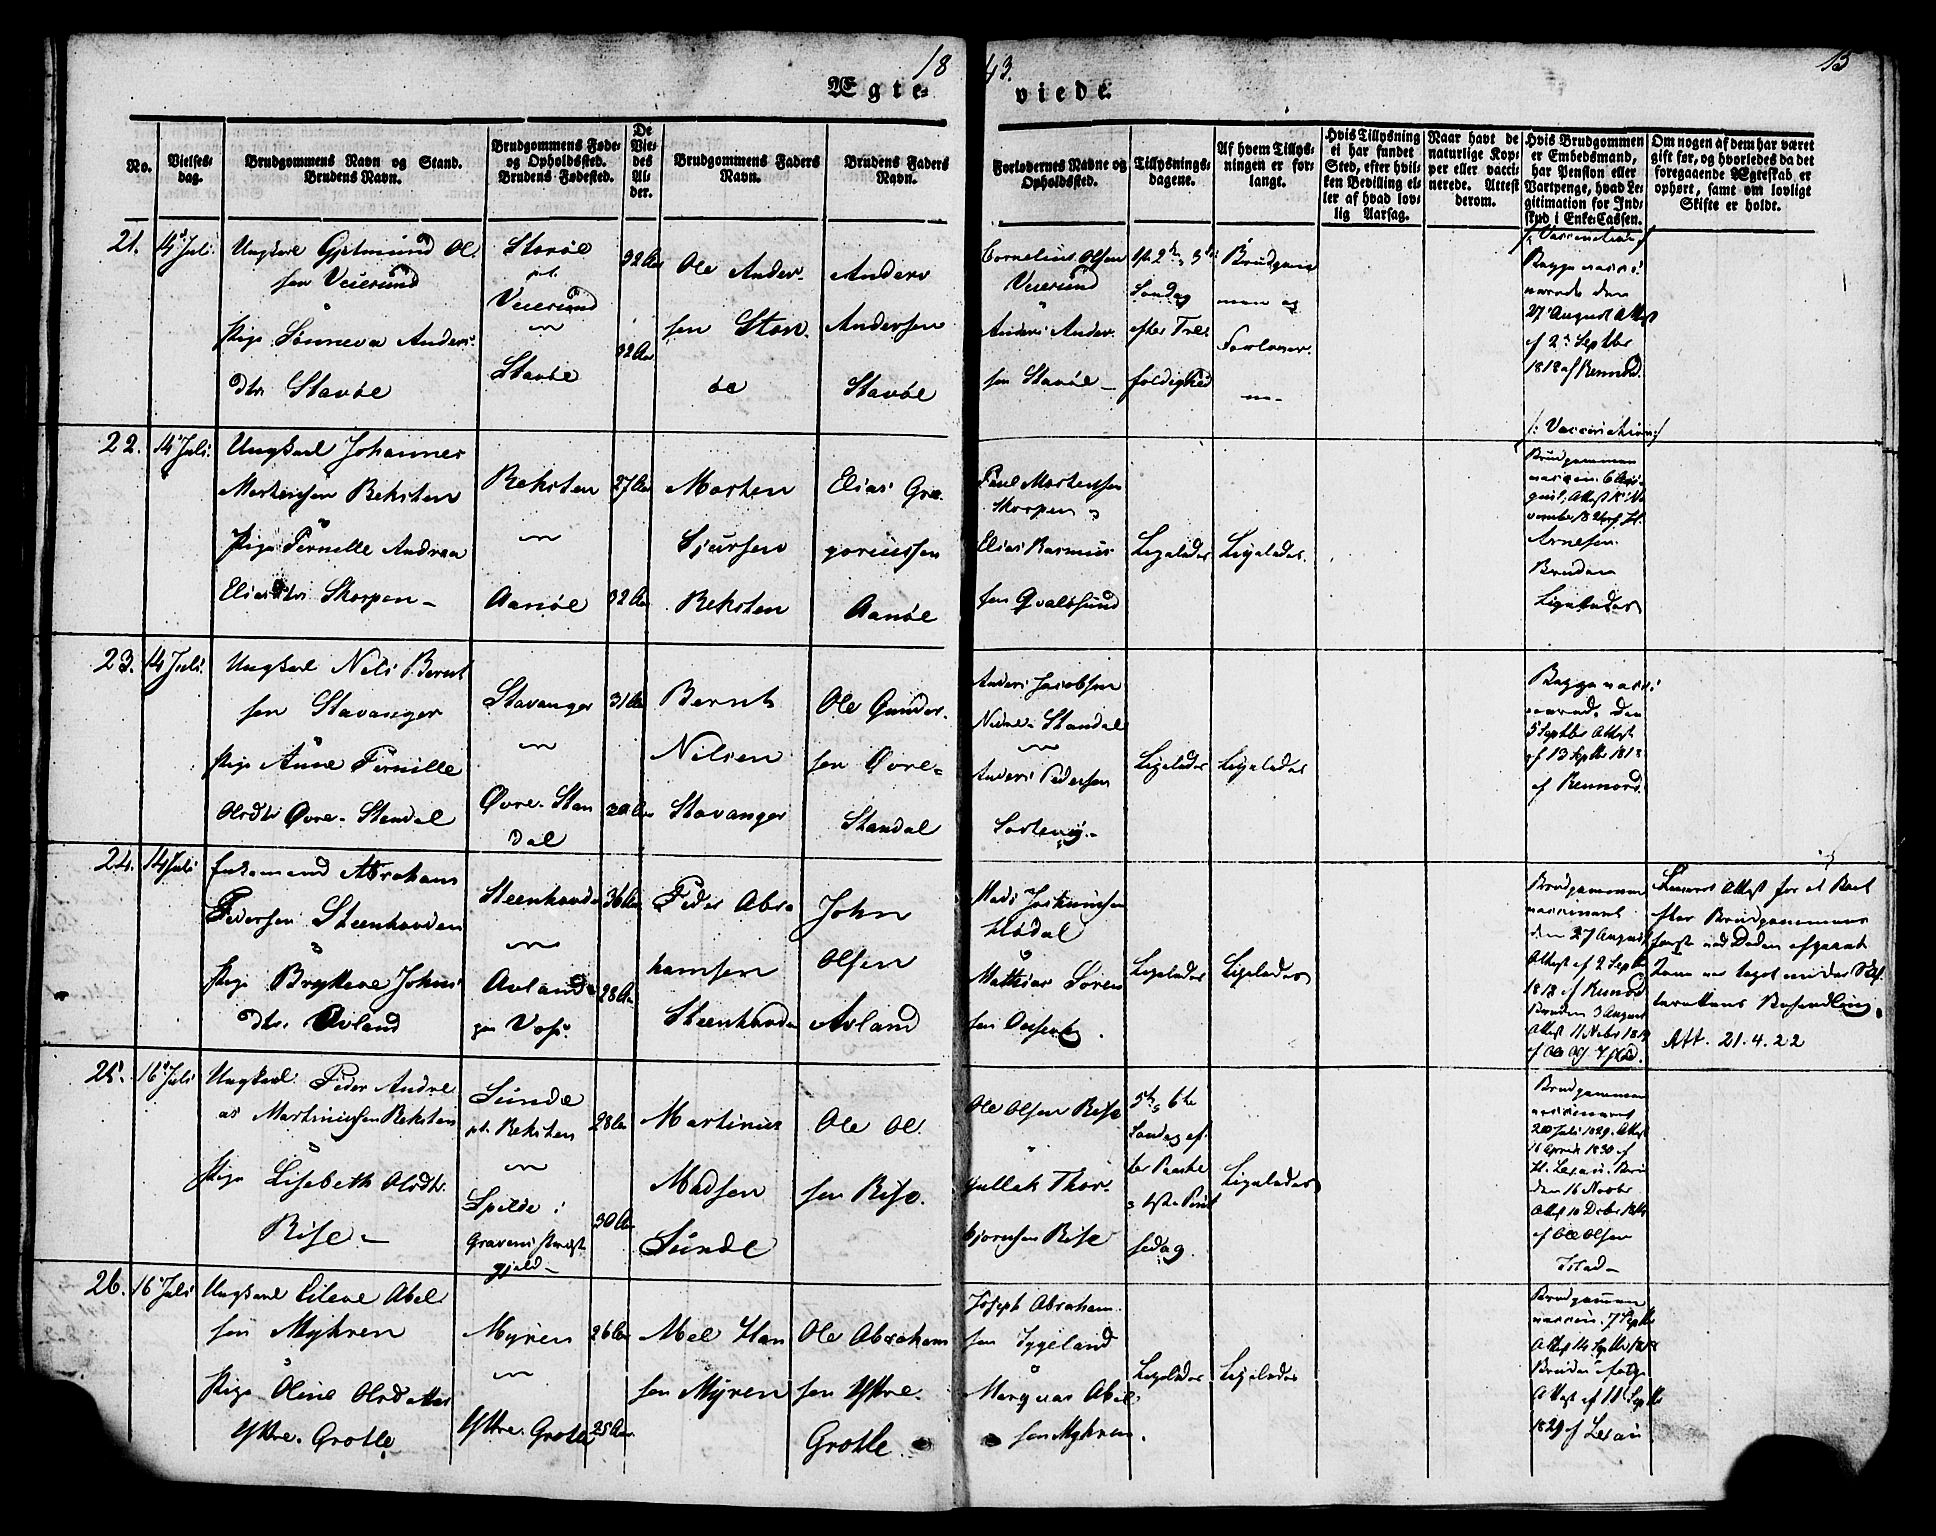 18 43. 13
Ægte- viede.
No.
Vielses-
dag.
Brudgommens Navn og Stand.
Brudens Navn.
Brudgommens Føde-
og Opholdssted.
Brudens Fødested.
De
Vie-
des
Al-
der.
Brudgommens Faders
Navn.
Brudens Faders
Navn.
Forlovernes Navne og
Opholdssted.
Tillysnings-
dagene.
Af hvem Tillys-
ningen er for-
langt.
Hvis Tillysning
ei har fundet
Sted, efter hvil-
ken Bevilling el-
ler af hvad lov-
lig Aarsag.
Naar havt de
naturlige Kop-
per eller vacci-
nerede. Attest
derom.
Hvis Brudgommen
er Embedsmand,
har Pension eller
Vartpenge, hvad Le-
gitimation for Ind-
skud i Enke-Cassen.
Om nogen af dem har været
gift før, og hvorledes da det
foregaaende Ægteskab er
ophørt, samt om lovligt
Skifte er holdt.
21.
14 Juli
Ungkarl Gjetmund Ol
sen Veiesund
Pige Sønneva Anders
dtr. Stavøe
Stavøe
pt.
Veiesund
Stavøe
32 Aar
32 Aar
Ole Ander-
sen Stav
øe
Anders
Andersen
Stavøe
Cornelius Olsen
Veiesund
Anders Ander-
sen Stavøe
1ste 2den 3die
Søndag
efter Tre-
foldighed
Brudgom
men og
Forlover-
ne
/: Vaccination :/
Begge vacci
nerede den
27 August Attest
af 2 Septbr
1818 af Rennord.
22.
14 Juli
Ungkarl Johannes
Mortensen Reksten
Pige Pernille Andrea
Eliasdtr Skorpen
Reksten
Aanøe
27 Aar
32 Aar
Morten
Sjursen
Reksten
Elias Gre-
goriussen
Aanøe
Paul Mortensen
Skorpen
Elias Rasmus
sen Qvaløsund
Ligeledes
Ligeledes
/: Vaccination :/
Brudgommen
Arnesen
Bruden
Ligeledes
23.
14 Juli
Ungkarl Nils Bernt
sen Stavanger
Pige Anne Pernille
Olsdtr Øvre-Standal
Stavanger
Øvre-Stan
dal
31 Aar
Bernt
Nilsen
Stavanger
Ole Gunder-
sen Øvre-
Standal
Anders Jacobsen
Nedre-Standal
Anders Pedersen
Ligeledes
Ligeledes
Begge vacci
nerede den
5 Septbr Attest
af 13 Septbr 1818
af Rennord.
24.
14 Juli
Enkemand Abraham
Pedersen Steenhovden
Pige Brytheve Johns
dtr. Avland
Steenhovden
Avland
paa Voss
36 Aar
28 Aar
Peder Abra
hamsen
Steenhovden
John
Olsen
Avland
Mads
Mathias Søren
sen
Ligeledes
Ligeledes
Brudgommen
vaccineret
den 27 August
Attest af 2 Septbr
1818 af Rennord
Bruden 3 August
Leveret Attest for at Boet
efter Brudgommens
først ved Døden afgaaet
Kone var taget under Skif
terettens Behandling.
Att. 21.4.22
25.
16 Juli
Ungkarl Peder Andre
as Martinussen Reksten
Pige Lisebeth Olsdtr.
Rise
Sunde
pt. Reksten
Spilde i
Gravens Præste
gjeld
28 Aar
30 Aar
Martinus
Madsen
Sunde
Ole Ol-
sen Rise.
Ole Olsen Rise
Gullak Thor-
bjørnsen Rise
5te 6te
Søndag ef-
ter Paaske
1ste Pint
sedag.
Ligeledes
Brudgommen
vaccineret
20 Juli 1829. Attest
16 April 1830 af
den 16 Novbr
af Ole Olsen
26.
16 Juli
Ungkarl Eileve Abel
sen Myhren
Pige Oline Olsdatter
Yttre. Grotle
Myren
Yttre. Grotle
26 Aar
25 Aar
Abel Han
sen Myren
Ole Abraham
sen Yttre.
Grotle.
Joseph Abraham-
sen Sygeland
Marqvas Abel
sen Myhren.
Ligeledes
Ligeledes
Brudgommen
vaccin. 7 Septbr
Attest 14 Septbr 1818
Bruden ifølge
Attest af 11 Septbr
1829 af